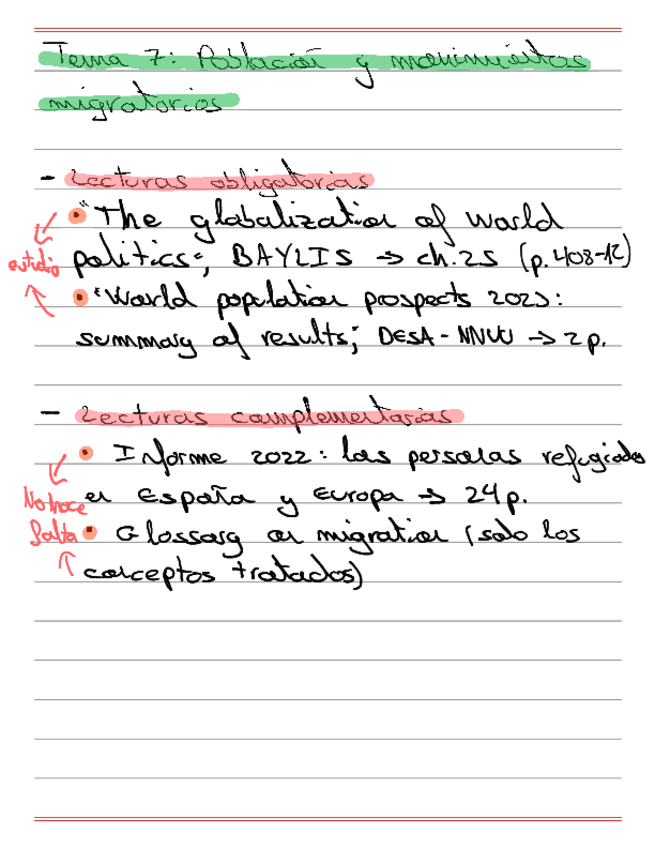 Tema 7: Población y movimientos
migratorios
- Lecturas obligatorias
• "The globalization of world
estudio
politics", BAYLIS → ch.25 (p.408-12)
• "World population prospects 2023:
summary of results; DESA-NNUU → 2p.
- Lecturas complementarias
• Informe 2022: las personas refugiadas
en España y Europa → 24p.
No hace
falta
• Glossary on migration (solo los
conceptos tratados)